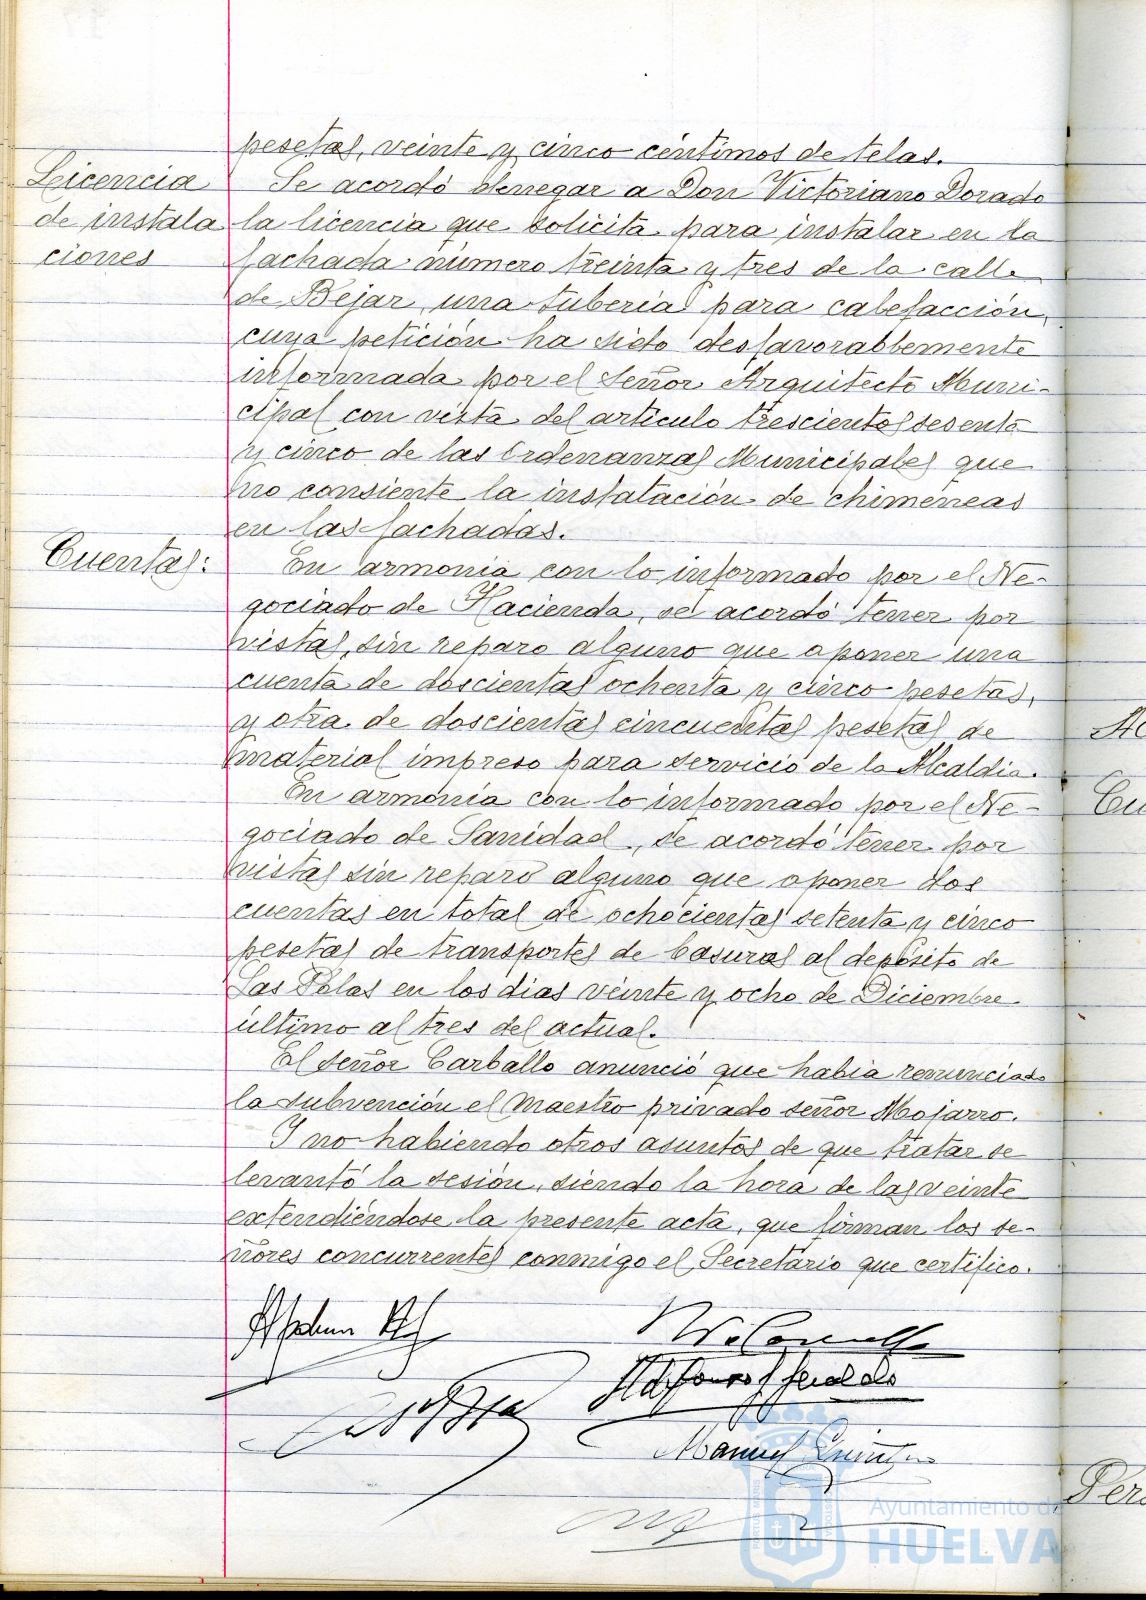 pesetas, veinte y cinco céntimos de telas.
Licencia
de instala
ciones
Se acordó denegar a Don Victoriano Dorado
la licencia que solicita para instalar en la
fachada número treinta y tres de la calle
de Bejar, una tubería para calefacción,
cuya petición ha sido desfavorablemente
informada por el Señor Arquitecto Muni-
cipal con vista del artículo trescientos sesenta
y cinco de las Ordenanzas Municipales que
no consiente la instalación de chimeneas
en las fachadas.
Cuentas:
En armonía con lo informado por el Ne-
gociado de Hacienda, se acordó tener por
vistas, sin reparo alguno que oponer una
cuenta de doscientas ochenta y cinco pesetas,
y otra de doscientas cincuentas pesetas de
material impreso para servicio de la Alcaldia.
En armonía con lo informado por el Ne-
gociado de Sanidad, se acordó tener por
vistas sin reparo alguno que oponer dos
cuentas en total de ochocientas setenta y cinco
pesetas de transportes de basuras al depósito de
Las Palas en los dias veinte y ocho de Diciembre
último al tres del actual.
El señor Carballo anunció que habia renunciado
la subvención el maestro privado señor Mojarro.
I no habiendo otros asuntos de que tratar se
levantó la sesión, siendo la hora de las veinte
extendiéndose la presente acta, que firman los se-
ñores concurrentes conmigo el Secretario que certifico.
Manuel
Ayuntamiento de
HUELVA